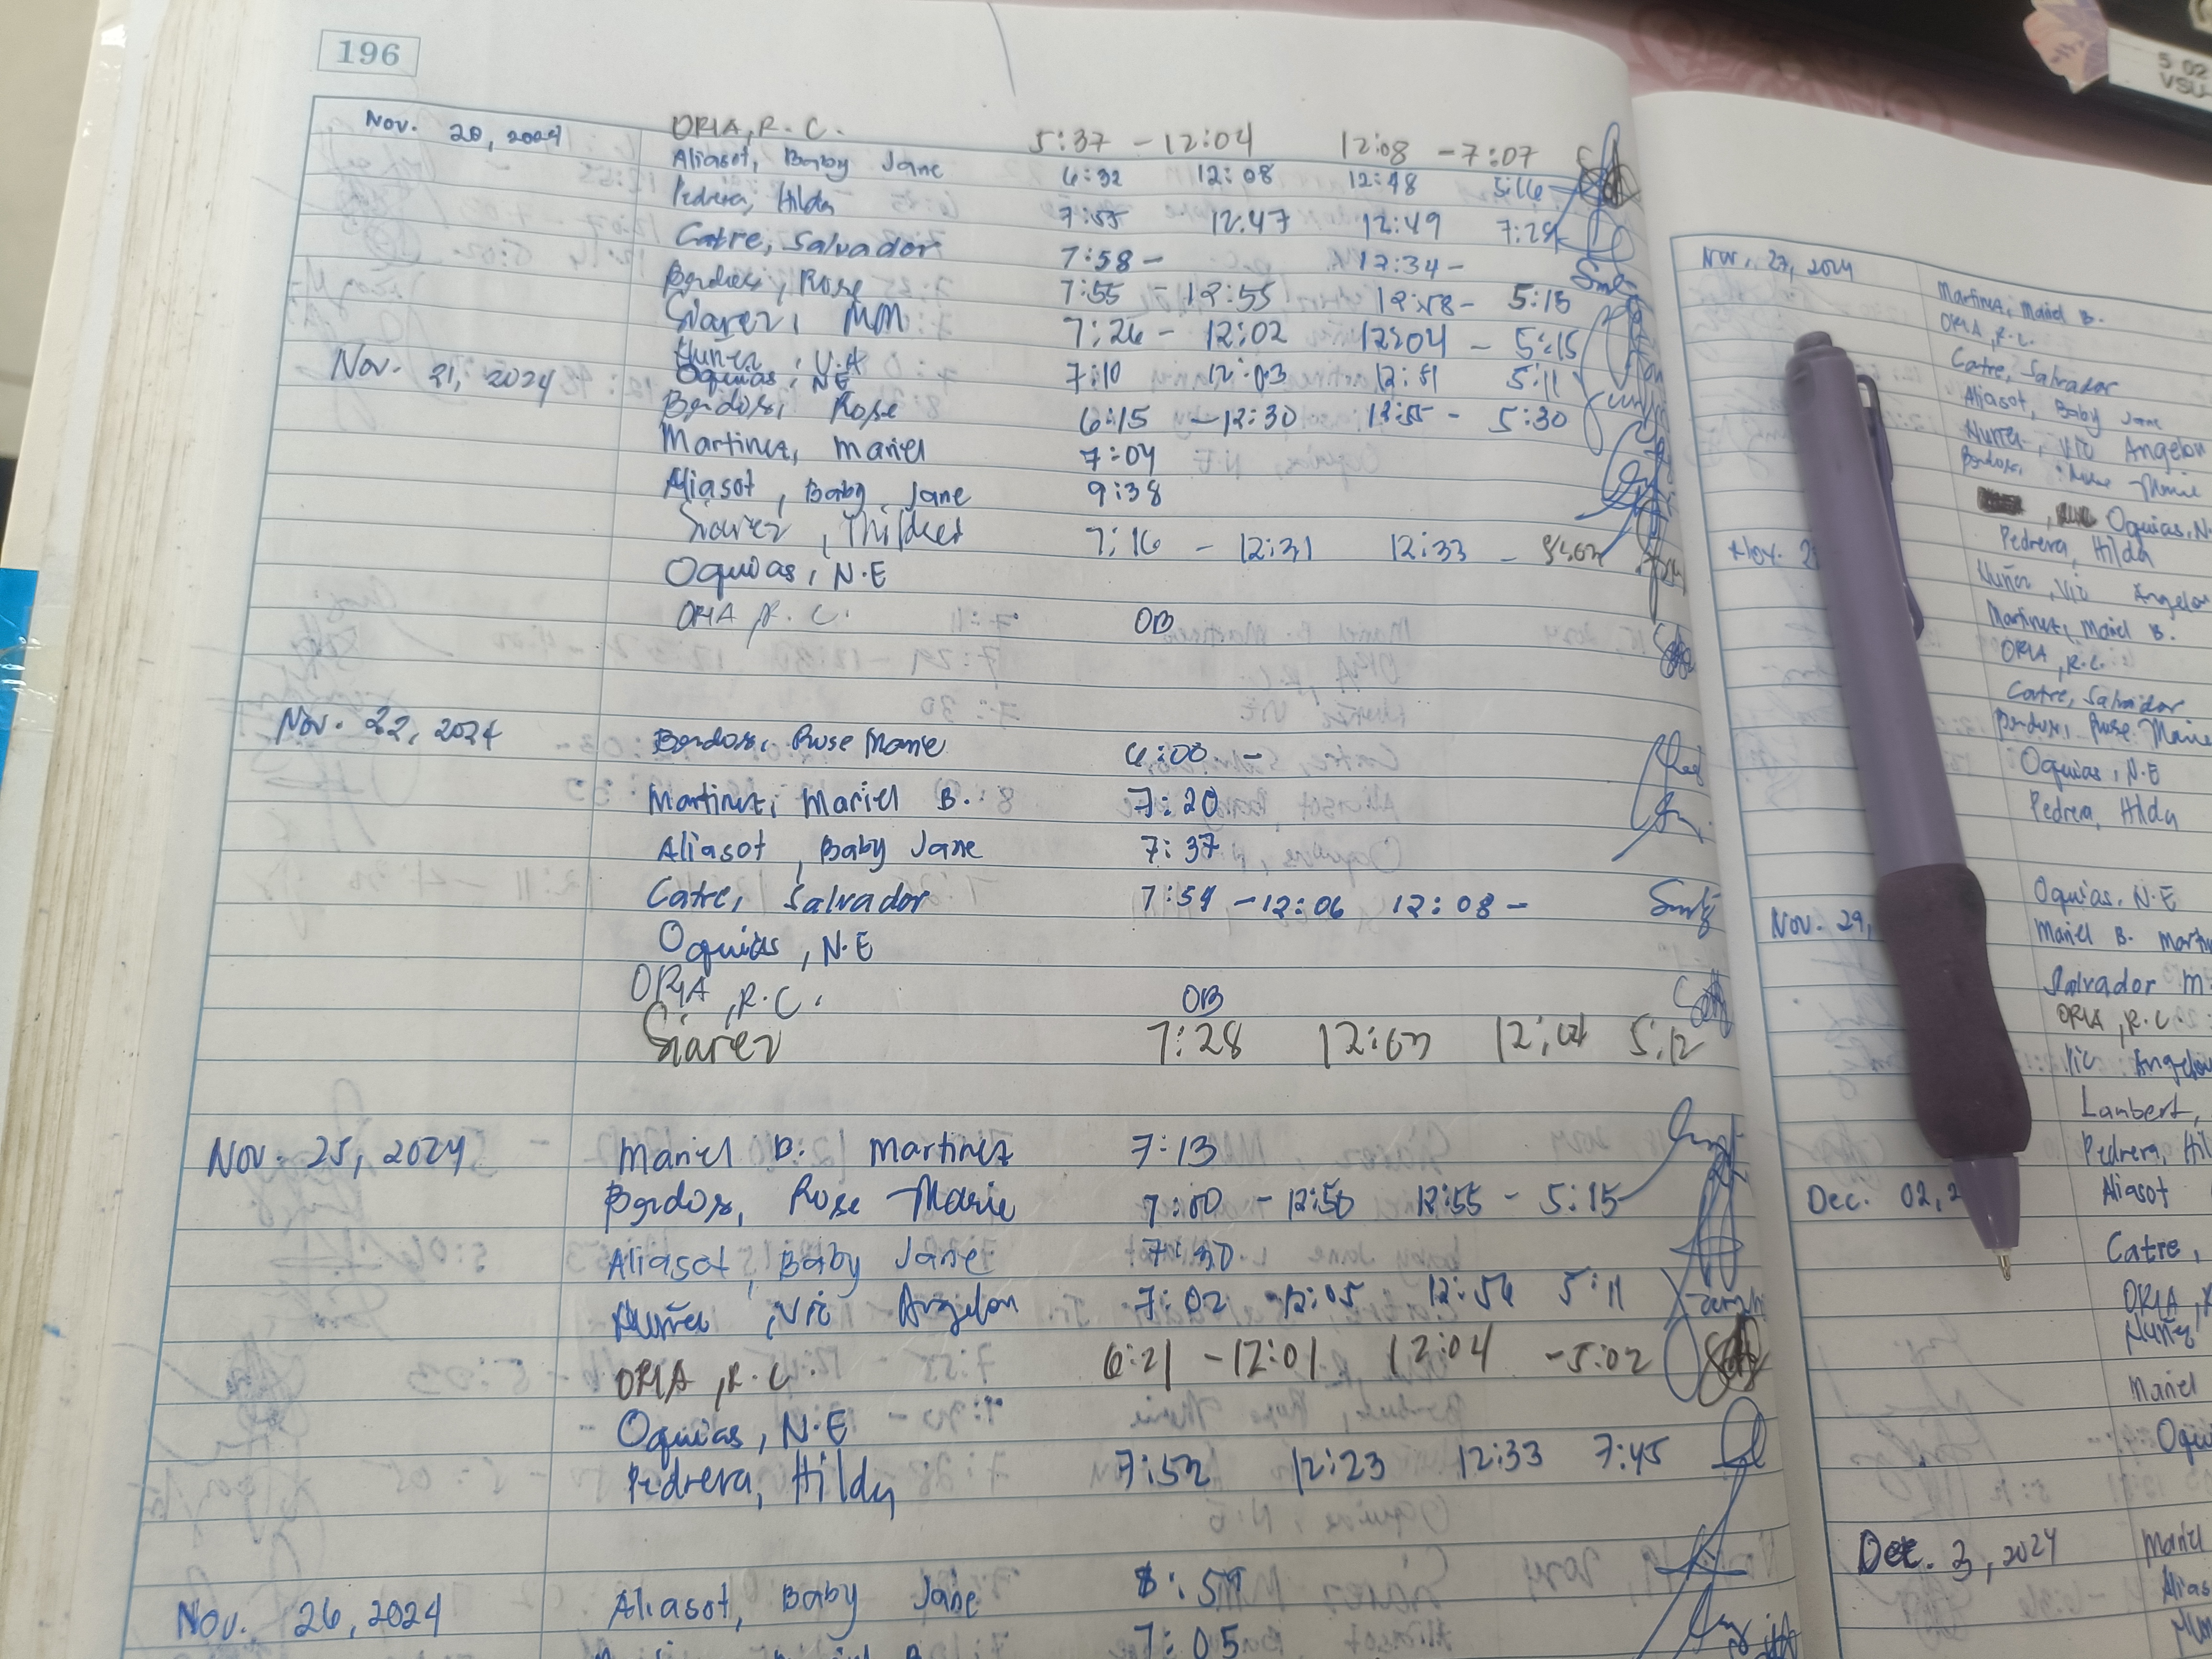 196
Nov. 20, 2024 ORIA, R. C. 5:37 - 12:04 12:08 - 7:07
Aliasot, Baby Jane 6:32 12:08 12:48 5:16
Pedrera, Hilda 7:55 12:47 12:49
Catre, Salvador 7:58 - 12:34 -
Rose 7:55 - 12:55 12:58 - 5:15
Siarez, MM 7:26 - 12:02 12:04 - 5:15
Nuñez, V.A 7:10 12:03 12:51 5:11
Nov. 21, 2024 Oquias, N.E
Rose 6:15 - 12:30 12:55 - 5:30
Martinez, Mariel 7:04
Aliasot, Baby Jane 9:38
Siarez, 7:16 - 12:31 12:33 -
Oquias, N.E
ORIA, R. C. OB
Nov. 22, 2024 Rose Marie 6:00 -
Martinez, Mariel B. 7:20
Aliasot, Baby Jane 7:37
Catre, Salvador 7:59 - 12:06 12:08 -
Oquias, N.E
ORIA, R.C. OB
Siarez 7:28 12:03 12:04 5:12
Nov. 25, 2024 Mariel B. Martinez 7:13
Rose Marie 7:00 - 12:50 12:55 - 5:15
Aliasot, Baby Jane 7:30
Nuñez, Vic Angelou 7:02 - 12:05 12:56 5:11
ORIA, R.C. 6:21 - 12:01 12:04 - 5:02
Oquias, N.E
Pedrera, Hilda 7:52 12:23 12:33 7:45
Nov. 26, 2024 Aliasot, Baby Jane 8:59
7:05
Nov. 27, 2024 Martinez, Mariel B.
ORIA, R.C.
Catre, Salvador
Aliasot, Baby Jane
Nuñez, Vic Angelou
Marie
Oquias, N.
Pedrera, Hilda
Nov. 2
Nuñez, Vic Angelou
Martinez, Mariel B.
ORIA, R.C.
Catre, Salvador
Rose Marie
Oquias, N.E
Pedrera, Hilda
Oquias, N.E
Nov. 29, Mariel B.
Salvador M.
ORIA, R.C.
Vic Angelou
Lambert,
Pedrera, Hil
Dec. 02, 2 Aliasot
Catre,
ORIA,
Nuñez
Mariel
Oqui
Dec. 3, 2024 Mariel
Alias
5 02
VSU-